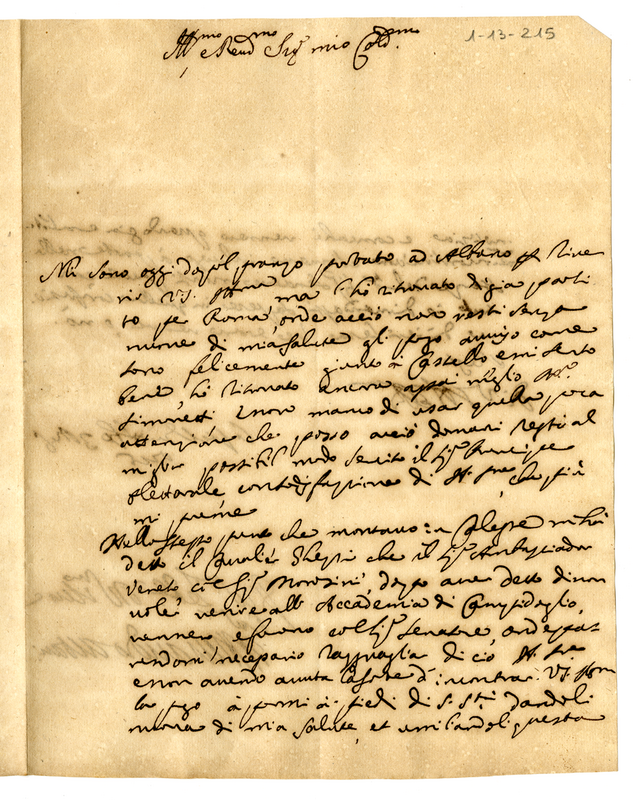 Ill.mo e Reud.mo Sig.r mio Col.mo
1-13-215
Mi sono oggi dopo'l pranzo portato ad Albano p river
rir V.S. Ill.ma, ma l'hò ritrovato digia parti
to per Roma, onde acciò non resti senza
nuove di mia salute gli pogo avviso come
sono felicemente giunto à Castello e mi sento
bene, hò ritrovato ancora assai meglio
Simonetti e non manco di usar quella poca
attenzione che posso acciò domani resti al
miglior possibil modo servito il Sig.r Principe
Elettorale con sodisfazione di che più
mi preme
Nello stesso punto che montavo in Calesse mi hà
detto il Cavalier Ghezzi che il Sig.r Ambasciador
Veneto col Sig.r Morosini, dopo aver detto di non
voler venire all' Accademia di Campidoglio,
vennero e furono col Sig.r Senatore, onde
rendomi necessario ragguaglia di ciò
e non avendo avuta la sorte d'incontrar V.S. Ill.ma
la pego à porsi à piedi di S. S.tà dandoli
nuova di mia salute, et umiliandoli questa